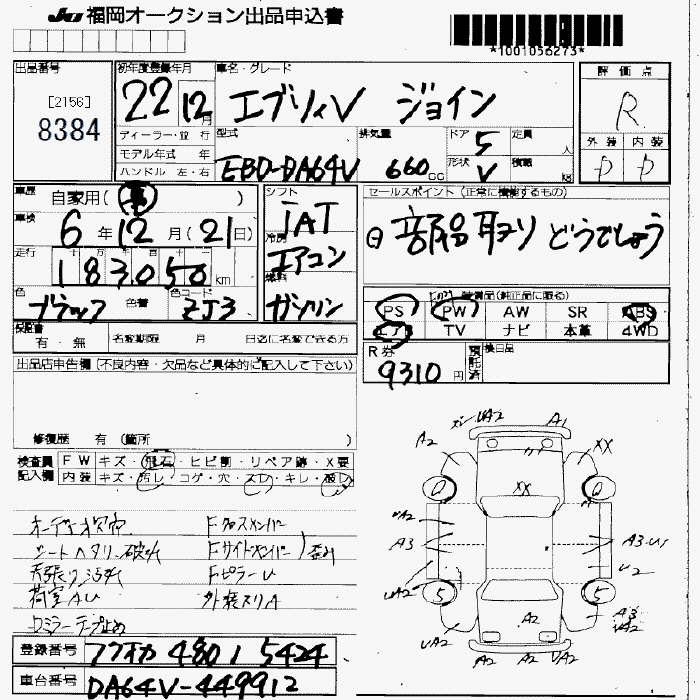 JU福岡オークション出品申込書
*1001056273*
出品番号
[2156]
8384
初年度登録年月
22 12月
車名・グレード
エブリィV ジョイン
ディーラー・並行
モデル年式 年
ハンドル 左・右
型式
EBD-DA64V
排気量
660cc
ドア 5
形状 V
定員 人
積載 kg
評価点
R
外装 内装
D D
車歴 自家用( )
車検 6年12月(21日)
走行 183,050km
色 ブラック 色替 色コード ZJ3
シフト
IAT
冷房
エアコン
燃料
ガソリン
セールスポイント(正常に機能するもの)
部品取り どうでしょう
装備品(純正品に限る)
PS PW AW SR ABS
エアB TV ナビ 本革 4WD
保証書 有・無 名変期限 月 日迄に名変できる方
R券 9310円 預託済 後日品
出品店申告欄(不良内容・欠品など具体的に記入して下さい)
修復歴 有(箇所 )
検査員 FW キズ・飛石・ヒビ割・リペア跡・X要
記入欄 内装 キズ・汚レ・コゲ・穴・スレ・キレ・破レ
オーディオ欠品 Fクロスメンバー
シートヘタリ・破れ Fサイドメンバー 歪み
天張り汚れ FピラーU
荷室AU 外装スリA
ミラーテープ止め
A2 UA2 A1 XX
XX
UA2
A3 A3・U1
UA2 U2
5 5
UA2 A2 A3 UA2
A2 A2 A2
登録番号 フクオカ 480 ｿ 5424
車台番号 DA64V-449912